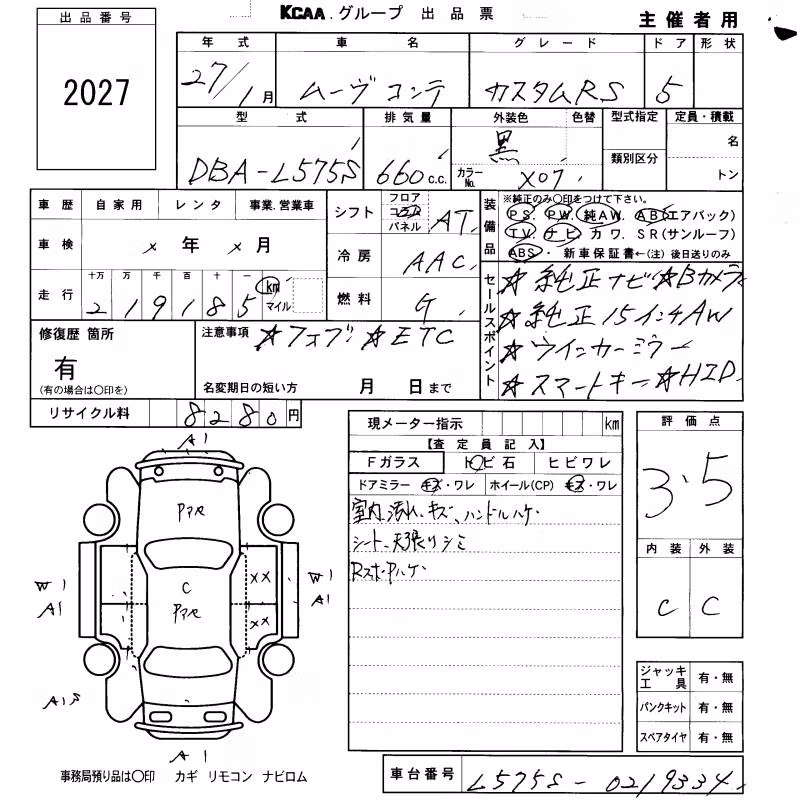 KCAA.グループ 出品票
主催者用
出品番号
2027
年式 車名 グレード ドア 形状
27/1月 ムーヴコンテ カスタムRS 5
型式 排気量 外装色 色替 型式指定 定員・積載
DBA-L575S 660c.c. 黒 カラーNo. X07 類別区分 名 トン
車歴 自家用 レンタ 事業.営業車
シフト フロア コラム パネル AT
装備品 ※純正のみ○印をつけて下さい。
PS. PW. 純AW. AB(エアバック)
TV. ナビ カワ. SR(サンルーフ)
ABS・新車保証書←(注)後日送りのみ
車検 × 年 × 月
冷房 AAC
走行 十万 万 千 百 十 一 km マイル
219185
燃料 G
セールスポイント
☆純正ナビ☆Bカメラ
☆純正15インチAW
☆ウインカーミラー
☆スマートキー☆HID
修復歴 箇所
有
(有の場合は○印を)
注意事項 ☆フォブ☆ETC
名変期日の短い方 月 日まで
リサイクル料 8280円
現メーター指示 km
【査定員記入】
Fガラス トビ石 ヒビワレ
ドアミラー キズ・ワレ ホイール(CP) キズ・ワレ
室内汚れ、キズ、ハンドルハゲ
シート、天張りシミ
評価点
3.5
内装 外装
C C
A1
Pアセ
C
Pアセ
×× ××
W1 A1
W1 A1
A1S
A1
ジャッキ工具 有・無
パンクキット 有・無
スペアタイヤ 有・無
事務局預り品は○印 カギ リモコン ナビロム
車台番号 L575S-0219334